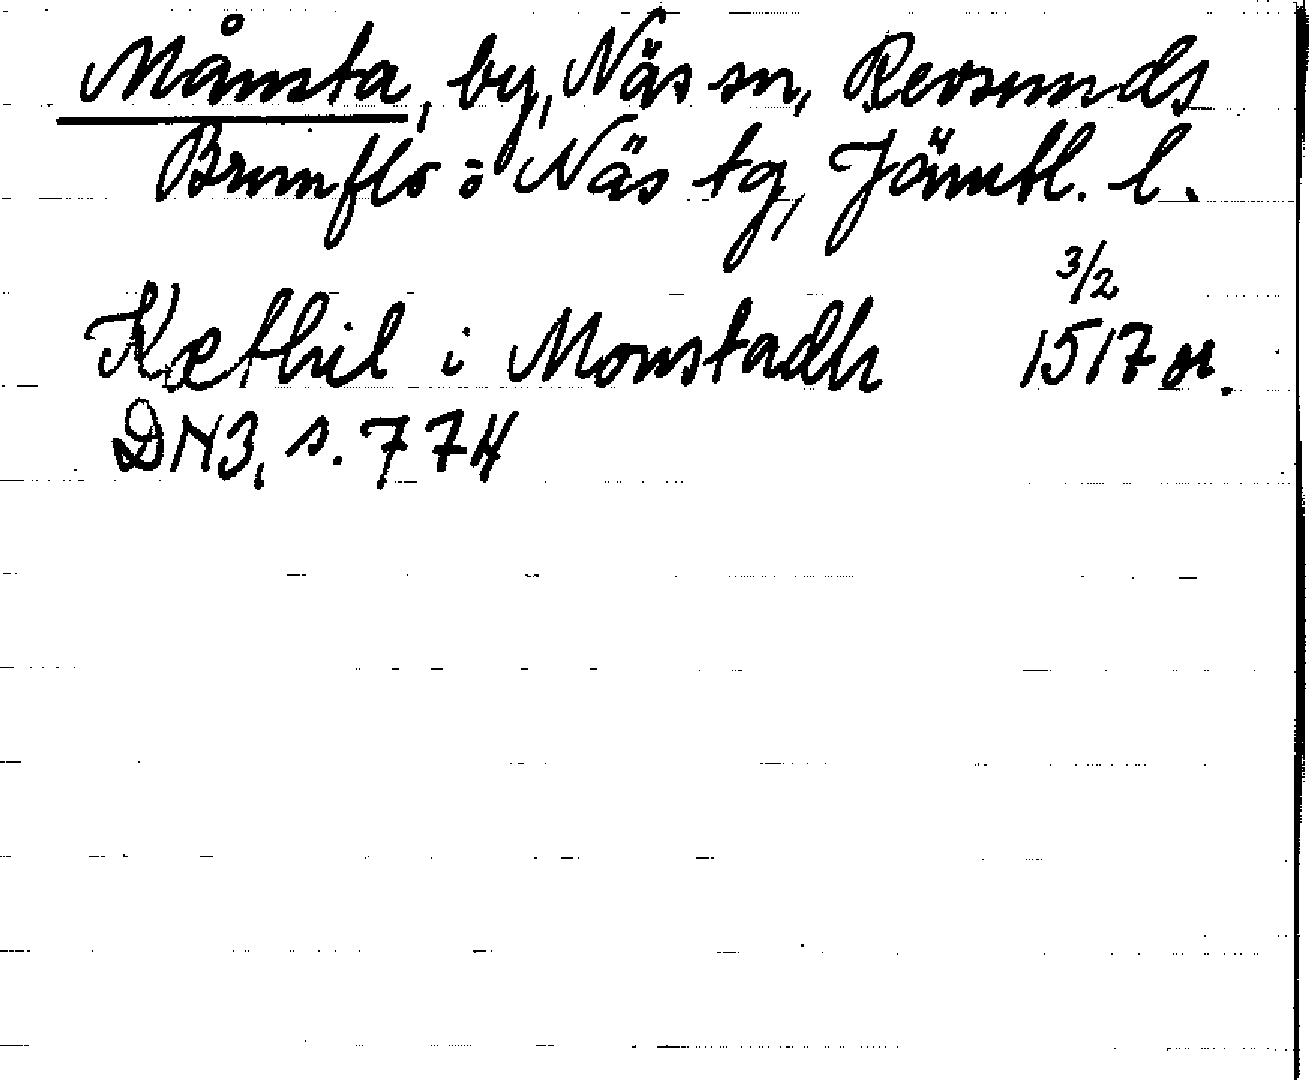 Månsta, by, Näs sn, Revsunds
Brunflo o Näs tg, Jämtl. l.
3/2
Kæthil i Monstadh 1517 or.
DN3, s. 774